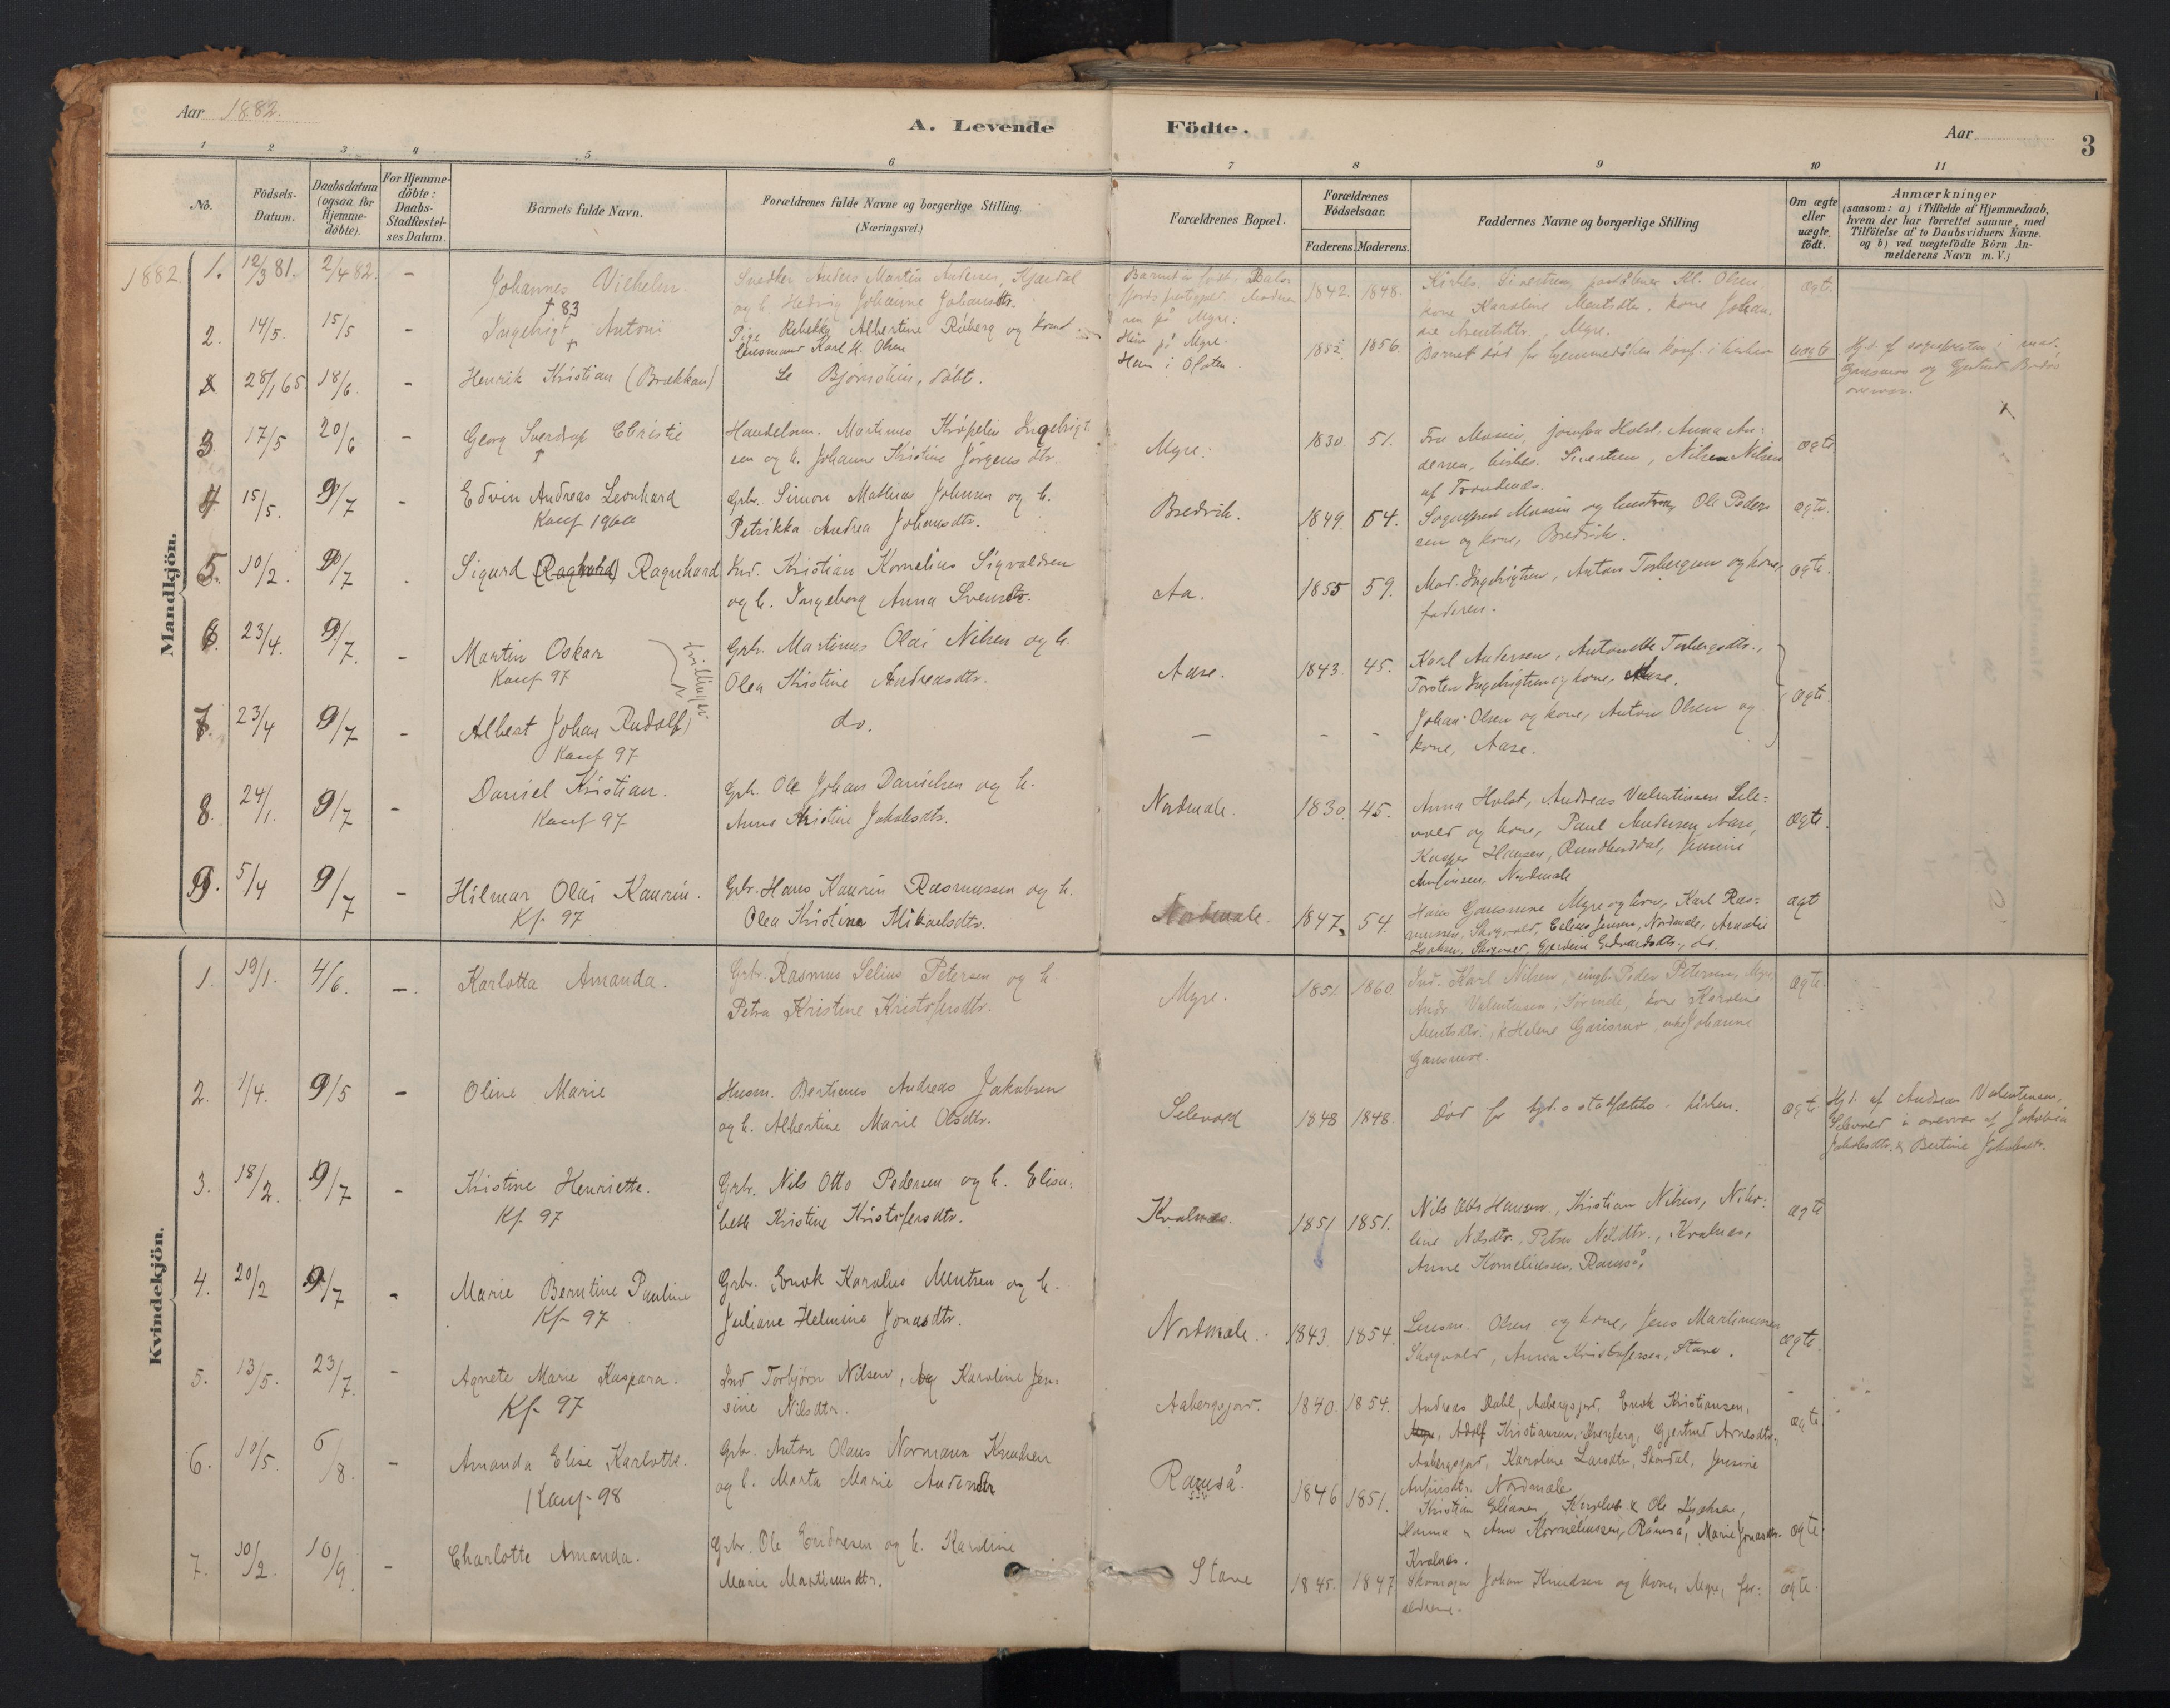 Aar 1882.
A. Levende
Födte.
Aar
3
1 2 3 4 5 6 7 8 9 10 11
No.
Födsels-
Datum.
Daabsdatum
(ogsaa for
Hjemme-
döbte).
For Hjemme-
döbte:
Daabs-
Stadfæstel-
ses Datum.
Barnets fulde Navn.
Forældrenes fulde Navne og borgerlige Stilling.
(Næringsvei.)
Forældrenes Bopæl.
Forældrenes
Födselsaar.
Faderens. Moderens.
Faddernes Navne og borgerlige Stilling
Om ægte
eller
uægte
födt.
Anmærkninger
(saasom: a) i Tilfælde af Hjemmedaab,
hvem der har forrettet samme, med
Tilföielse af to Daabsvidners Navne.
og b) ved uægtefödte Börn An-
melderens Navn m. V.)
Mandkjön.
1882. 1. 12/3 81. 2/4 82. - Johannes Vilhelm
Anders Martin Andersen, Kjærdal
og h. Hedvig Johanne Johansdtr.
1842. 1848.
kone Karoline Mentsdtr, kone Johan-
Myre.
ægt.
2. 14/5. 15/5 - Ingebrigt Antoni
† 83
Pige Rebekka Albertine Röberg og
Lensmand Karl H. Olsen
Hun på Myre.
Han i
1852. 1856.
Barnet död før hjemmedåben konf. i kirken
uægte
28/1 65 18/6. - Henrik Kristian (Brækkan)
Se Bjørnskin, döbt.
3. 17/5 20/6 - Georg Sverdrup Christie
†
Handelsm. Martinus Kröpelin Ingebrigt-
sen og h. Johanne Kristine Jörgensdtr.
Myre.
1830. 51.
Fru Massin, jomfru Holst, Anna An-
dersen, kirkes. Sivertsen, Nils Nilsen
af Trondenæs.
ægte
4. 15/5. 9/7 - Edvin Andreas Leonhard
Konf 1900
Grb. Simon Mathias Johnsen og h.
Petrikka Andrea Johansdtr.
Bredvik.
1849. 54.
Sognepræst Massin og hustru, Ole Peder-
sen og kone, Bredvik.
ægte.
5. 10/2. 9/7 - Sigurd (Ragnvald) Ragnhard
Ind. Kristian Kornelius Sigvaldsen
og h. Ingeborg Anna Svensdtr.
Aa.
1855 59.
Mad. Ingebrigtsen, Anton Torbergsen og kone,
faderen.
ægte.
6. 23/4. 9/7. - Martin Oskar
Konf 97
tvillinger
Grb. Martinus Olai Nilsen og h.
Olea Kristine Andreasdtr.
Aase.
1843. 45.
Karl Andersen, Antonette Torbergsdtr.,
Torsten Ingebrigtsen og kone, Aase.
ægte.
7. 23/4 9/7 - Albert Johan Rudolf
Konf 97
do.
- - -
Johan Olsen og kone, Anton Olsen og
kone, Aase.
8. 24/1. 9/7 - Daniel Kristian.
Konf 97
Grb. Ole Johan Danielsen og h.
Anne Kristine Jakobsdtr.
Nordmæle.
1830 45.
Anna Holst, Andreas Valentinsen Sele-
vold og kone, Paul Andersen Aase,
Kasper Hansen, Jensine
Anfinsen, Nordmæle
ægte.
9. 5/4 9/7 - Hilmar Olai Kaurin.
Kf. 97
Grb. Hans Kaurin Rasmussen og h.
Olea Kristine Mikaelsdtr.
Nordmæle.
1847. 54.
Hans Gausnæs Myre og kone, Karl Ras-
mussen, Skogvold, Celius Jensen, Nordmæle, Amalie
Isaksen, Skogvold, Gjerdine Edvardsdtr., do.
ægt
Kvindekjön.
1. 19/1. 4/6. - Karlotta Amanda.
Grb. Rasmus Selius Petersen og h.
Petra Kristine Kristofersdtr.
Myre.
1851. 1860.
Ind. Karl Nilsen, ungk. Peder Petersen, Myre,
Andr. Valentinsen, Sörmele, kone Karoline
Mentsdtr., Helene Gausnæs, enke Johanne
ægte.
2. 1/4. 9/5 - Oline Marie
Husm. Bertinus Andreas Jakobsen
og h. Albertine Marie Olsdtr.
Selevold
1848 1848.
Död før hjd.s stadfæstelse i kirken.
ægte
Hjd. af Andreas Valentinsen,
Selevold i overvær af Jakobine
Jakobsdtr. & Bertine Jakobsdtr.
3. 18/2. 9/7 - Kristine Henriette.
Kf. 97
Grb. Nils Otto Pedersen og h. Elisa-
beth Kristine Kristofersdtr.
Kvalnæs.
1851 1851.
Nils Otto Hansen, Kristian Nilsen, Niko-
line Nilsdtr., Petra Nilsdtr., Kvalnæs,
Anne Korneliussen, Ramså,
ægte
4. 20/2 9/7 - Marie Berntine Pauline
Kf. 97
Grb. Enok Karolus Mentsen og h.
Juliane Helmine Jonasdtr.
Nordmæle.
1843 1854.
Lensm. Olsen og kone, Jens Martinussen
Skogvold, Anna Kristofersen, Stave.
ægte.
5. 13/5. 23/7. - Agnete Marie Kaspara.
Kf. 97
Ind Torbjørn Nilsen, og Karoline Jen-
sine Nilsdtr.
Aabergsjord.
1840. 1854.
Andreas Dahl, Aabergsjord, Enok Kristiansen,
Adolf Kristiansen, Gjertrud Arnesdtr.
Aabergsjord, Karoline Larsdtr, Skardal, Jensine
Anfinsdtr, Nordmæle.
ægte
6. 10/5. 6/8. - Amanda Elise Karlotte.
Konf 98
Grb. Anton Olaus Normann Knudsen
og h. Marta Marie Andersdtr
Ramså.
1846 1851.
Kristian Eliassen, & Ole Isaksen,
Hanna & Ane Korneliussen, Ramså, Marie Jonasdtr.
Kvalnæs.
ægte
7. 10/2. 10/9. - Charlotte Amanda.
Grb. Ole Endresen og h. Karoline
Marie Martinusdtr.
Stave
1845. 1847
Skomager Johan Knudsen og kone, Myre, for-
ældrene.
ægte.